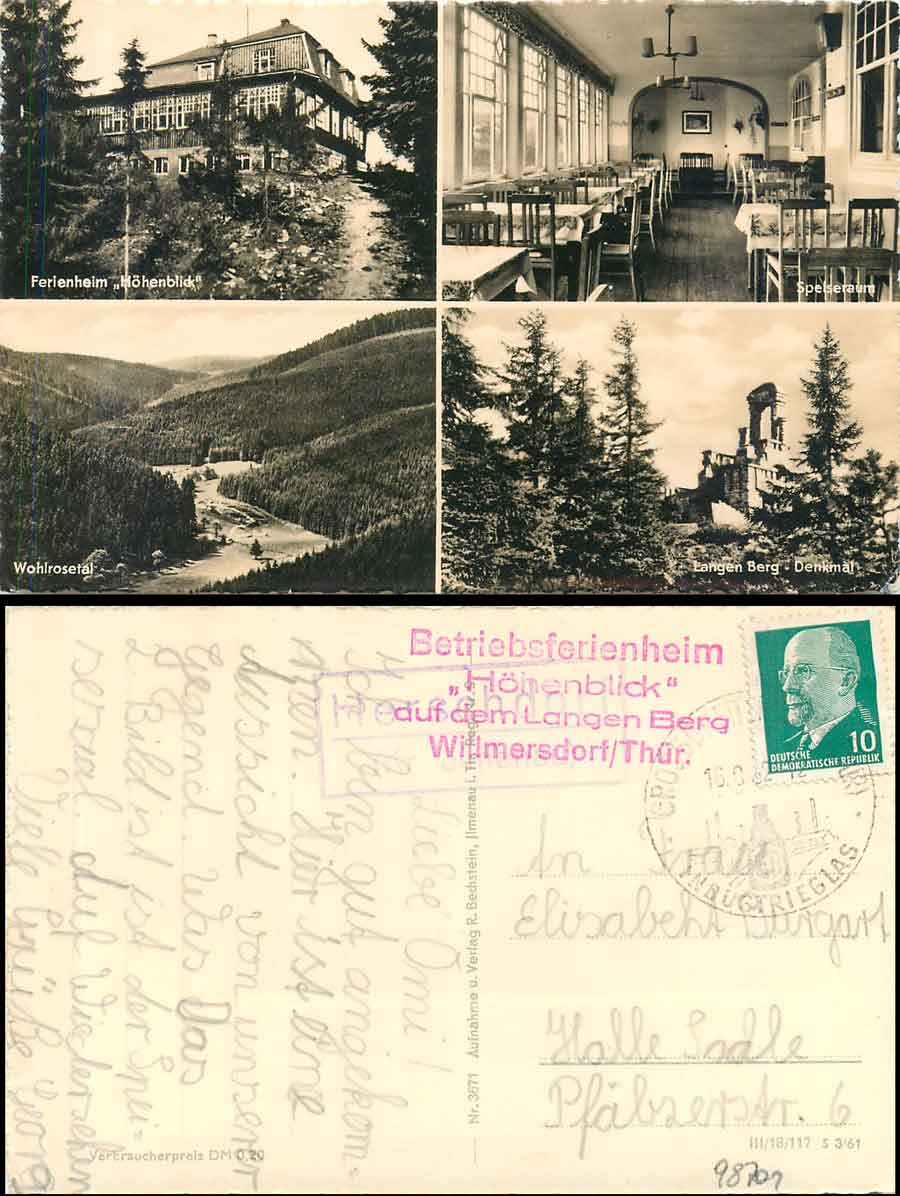 Ferienheim „Höhenblick"
Speiseraum
Wohlrosetal
Langen Berg - Denkmal
Betriebsferienheim
„Höhenblick"
auf dem Langen Berg
Willmersdorf/Thür.
DEUTSCHE
DEMOKRATISCHE REPUBLIK
10
INDUSTRIEGLAS
Liebe Omi!
Ich bin gut angekom=
men. Hir ist eine
Ansicht von unsrer
Gegend was Das
2. Bild ist der Spei=
sesaal. auf Wiedersehn
Viele Grüße Georg
Nr. 3671 Aufnahme u. Verlag R. Bechstein, Ilmenau i. Thr.
An Frau
Elisabeht Burgart
Halle Saale
Pfälzerstr. 6
Verbraucherpreis DM 0,20
III/18/117 S 3/61